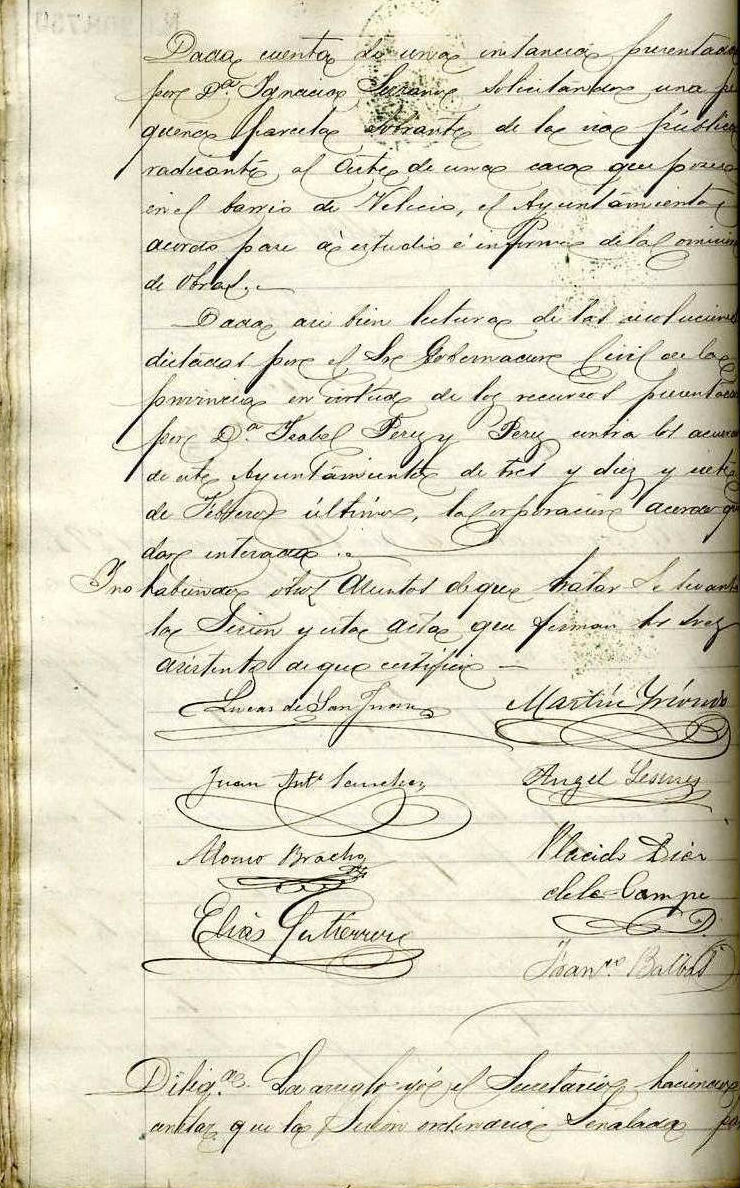 Dada cuenta de una instancia presentada
por Dª. Ignacia Serrano solicitando una pe
queña parcela sobrante de la via pública
radicante al Oeste de una casa que posee
en el barrio de Velecio, el Ayuntamiento
acordó pase á estudio é informe de la Comision
de Obras.
Dada asi bien lectura de las resoluciones
dictadas por el Sr Gobernador Civil de la
provincia en virtud de los recursos presentados
por Dª. Isabel Perez y Perez contra los acuerdos
de este Ayuntamiento de tres y diez y siete
de Febrero último, la Corporacion acordó que
dar enterada.
Y no habiendo otros asuntos de que tratar se levantó
la Sesion y esta acta que firman los Sres
asistentes de que certifico
Lucas de San Juan Martín Yriondo
Juan Antº Sanchez Angel
Alonso Bracho Placido Diez
de la Campa
Elias Gutierrez
Balbás
Diligª. La arreglo yo el Secretario haciendo
constar que la Sesion ordinaria señalada pa